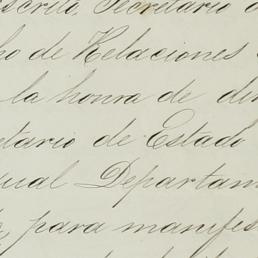 scrito, Secretario d
ho de Relaciones
la honra de di
etario de Estado
ual Departam
para manifes